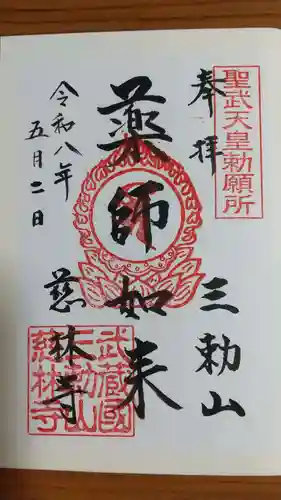 聖武天皇勅願所
奉拝
三勅山
薬師如来
令和八年
五月二日
慈林寺
武蔵國
三勅山
慈林寺